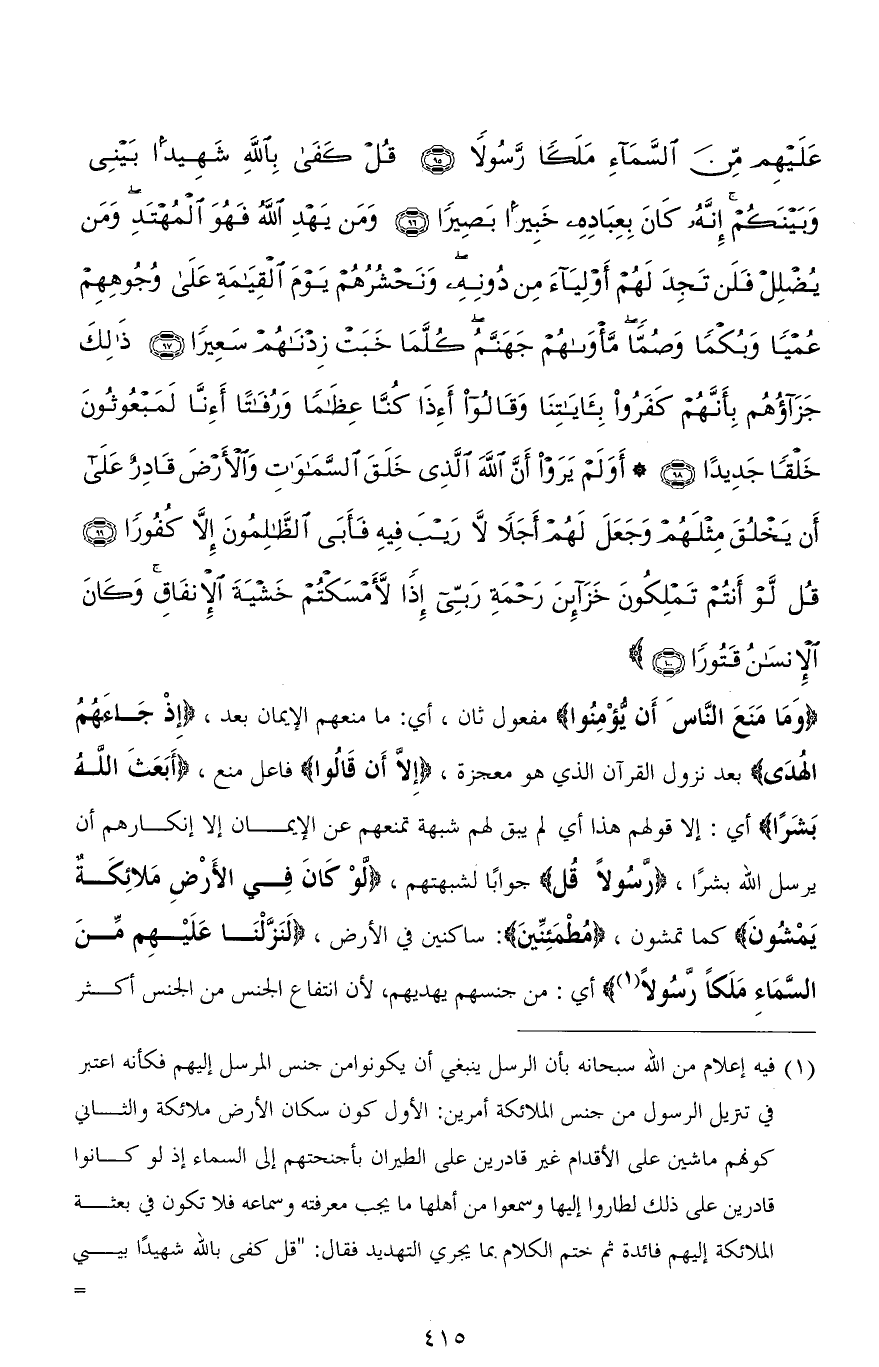 عَلَيْهِم مِّنَ ٱلسَّمَآءِ مَلَكًا رَّسُولًا ۝٩٥ قُلْ كَفَىٰ بِٱللَّهِ شَهِيدًۢا بَيْنِى
وَبَيْنَكُمْ ۚ إِنَّهُۥ كَانَ بِعِبَادِهِۦ خَبِيرًۢا بَصِيرًا ۝٩٦ وَمَن يَهْدِ ٱللَّهُ فَهُوَ ٱلْمُهْتَدِ ۖ وَمَن
يُضْلِلْ فَلَن تَجِدَ لَهُمْ أَوْلِيَآءَ مِن دُونِهِۦ ۖ وَنَحْشُرُهُمْ يَوْمَ ٱلْقِيَٰمَةِ عَلَىٰ وُجُوهِهِمْ
عُمْيًا وَبُكْمًا وَصُمًّا ۖ مَّأْوَىٰهُمْ جَهَنَّمُ ۖ كُلَّمَا خَبَتْ زِدْنَٰهُمْ سَعِيرًا ۝٩٧ ذَٰلِكَ
جَزَآؤُهُم بِأَنَّهُمْ كَفَرُوا۟ بِـَٔايَٰتِنَا وَقَالُوٓا۟ أَءِذَا كُنَّا عِظَٰمًا وَرُفَٰتًا أَءِنَّا لَمَبْعُوثُونَ
خَلْقًا جَدِيدًا ۝٩٨ * أَوَلَمْ يَرَوْا۟ أَنَّ ٱللَّهَ ٱلَّذِى خَلَقَ ٱلسَّمَٰوَٰتِ وَٱلْأَرْضَ قَادِرٌ عَلَىٰٓ
أَن يَخْلُقَ مِثْلَهُمْ وَجَعَلَ لَهُمْ أَجَلًا لَّا رَيْبَ فِيهِ فَأَبَى ٱلظَّٰلِمُونَ إِلَّا كُفُورًا ۝٩٩
قُل لَّوْ أَنتُمْ تَمْلِكُونَ خَزَآئِنَ رَحْمَةِ رَبِّىٓ إِذًا لَّأَمْسَكْتُمْ خَشْيَةَ ٱلْإِنفَاقِ ۚ وَكَانَ
ٱلْإِنسَٰنُ قَتُورًا ۝١٠٠﴾
﴿وَمَا مَنَعَ النَّاسَ أَن يُّؤْمِنُوا﴾ مفعول ثان ، أي: ما منعهم الإيمان بعد ، ﴿إِذْ جَاءَهُمُ
الهُدَى﴾ بعد نزول القرآن الذي هو معجزة ، ﴿إِلاَّ أَن قَالُوا﴾ فاعل منع ، ﴿أَبَعَثَ اللَّهُ
بَشَرًا﴾ أي : إلا قولهم هذا أي لم يبق لهم شبهة تمنعهم عن الإيمان إلا إنكارهم أن
يرسل الله بشرًا ، ﴿رَّسُولاً قُل﴾ جوابًا لشبهتهم ، ﴿لَّوْ كَانَ فِي الأَرْضِ مَلائِكَةٌ
يَمْشُونَ﴾ كما تمشون ، ﴿مُطْمَئِنِّينَ﴾: ساكنين في الأرض ، ﴿لَنَزَّلْنَا عَلَيْهِم مِّنَ
السَّمَاءِ مَلَكاً رَّسُولاً(١)﴾ أي : من جنسهم يهديهم، لأن انتفاع الجنس من الجنس أكثر
(١) فيه إعلام من الله سبحانه بأن الرسل ينبغي أن يكونوامن جنس المرسل إليهم فكأنه اعتبر
في تنزيل الرسول من جنس الملائكة أمرين: الأول كون سكان الأرض ملائكة والثاني
كونهم ماشين على الأقدام غير قادرين على الطيران بأجنحتهم إلى السماء إذ لو كانوا
قادرين على ذلك لطاروا إليها وسمعوا من أهلها ما يجب معرفته وسماعه فلا تكون في بعثة
الملائكة إليهم فائدة ثم ختم الكلام بما يجري التهديد فقال: "قل كفى بالله شهيدًا بيني
=
٤١٥